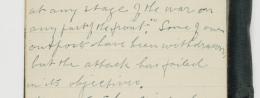 at any stage of the war on
any part of the front." Some of our
outposts have been withdrawn,
but the attack has failed
in its objectives.